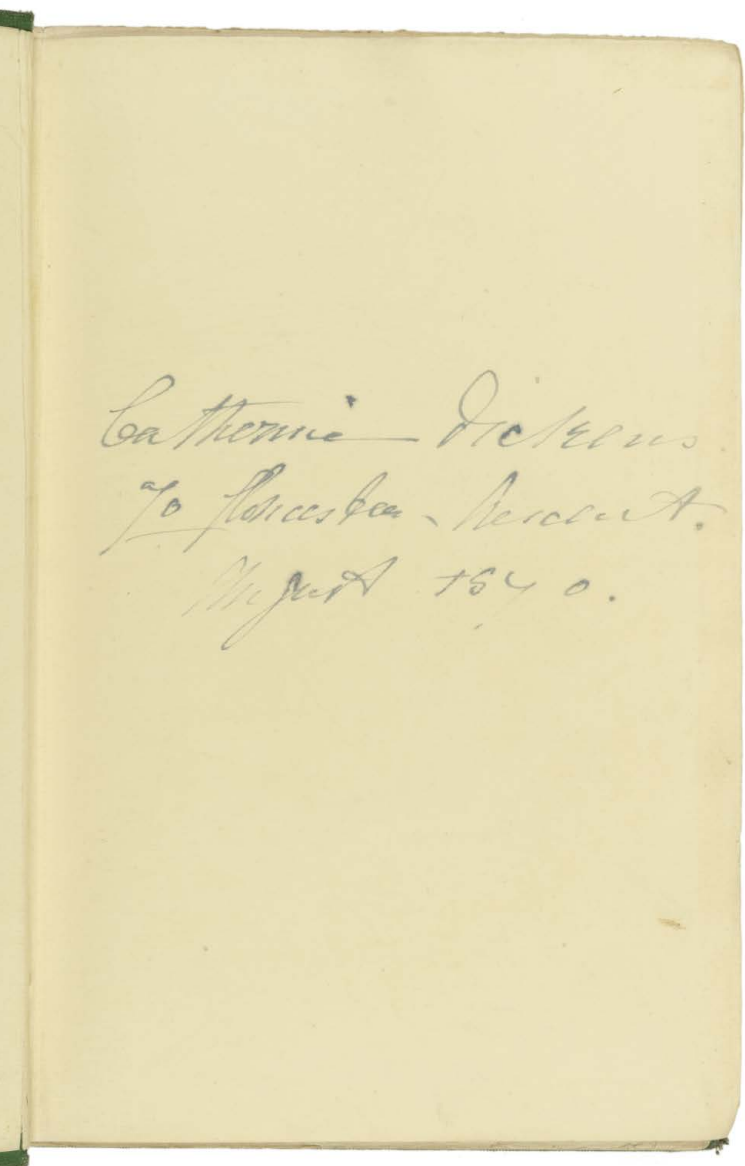 Catherine Dickens
70 Gloucester Crescent.
August 1870.